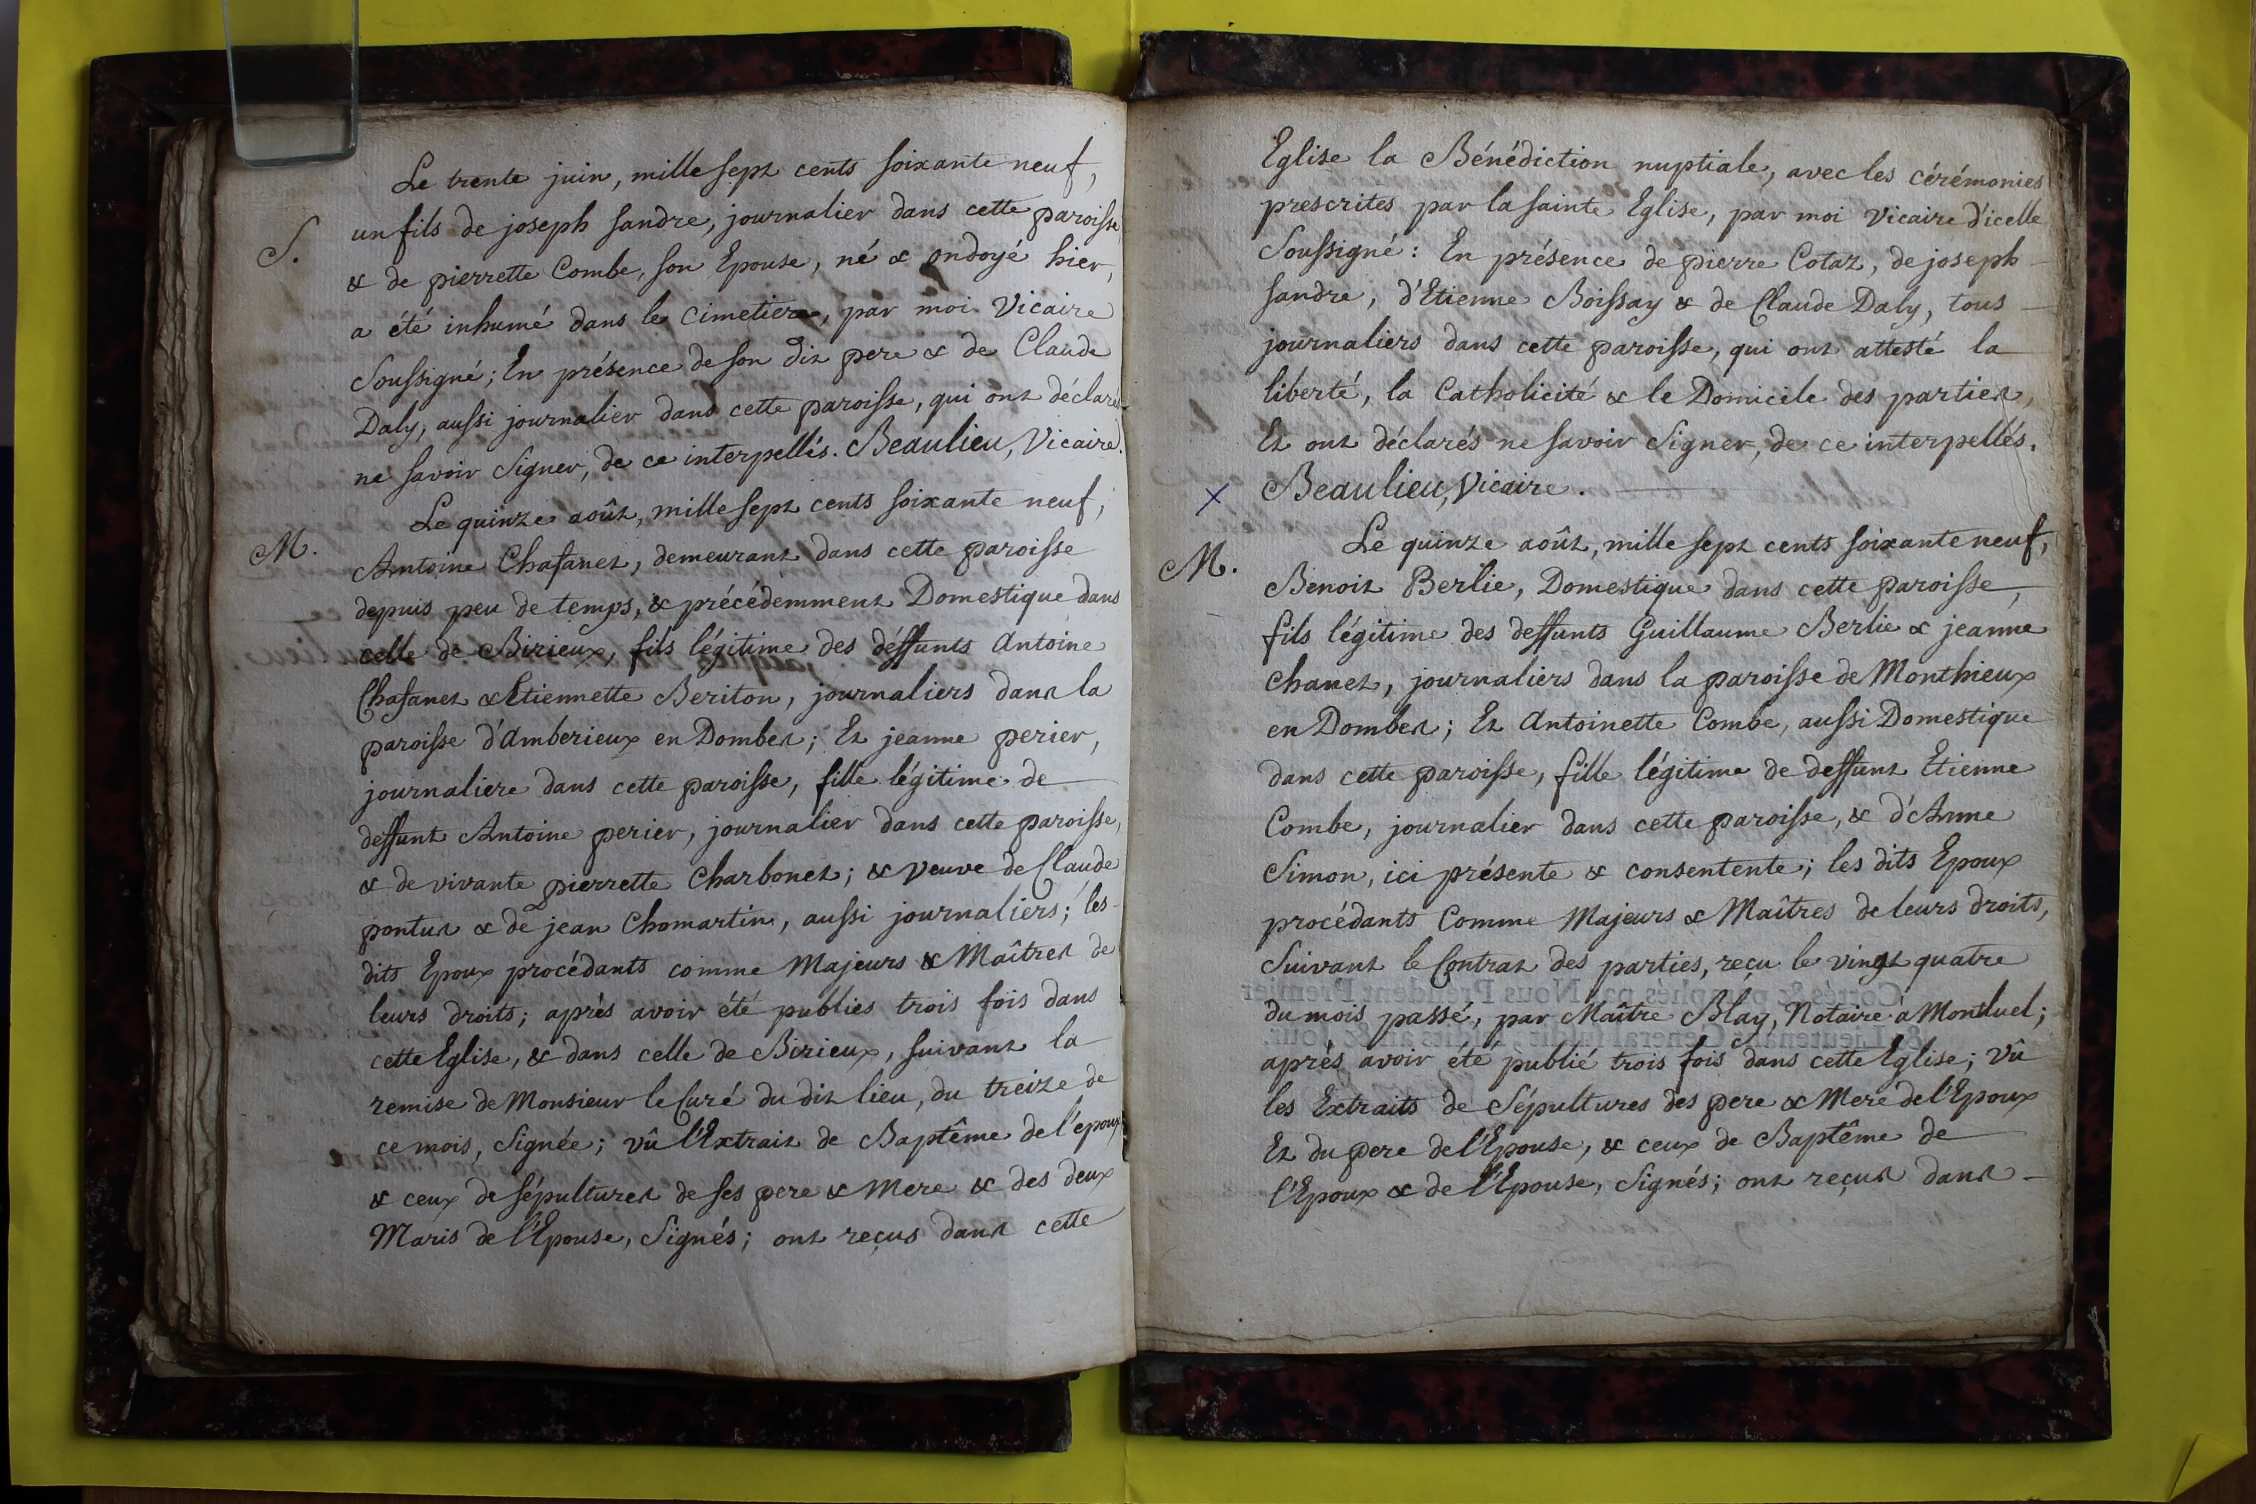 Le trente juin, mille sept cents soixante neuf,
S.
un fils de joseph Sandre, journalier dans cette paroisse,
& de pierrette Combe, son Epouse, né & ondoyé hier,
a été inhumé dans le cimetiere, par moi Vicaire
Soussigné; En présence de son dit pere & de Claude
Daly, aussi journalier dans cette paroisse, qui ont déclarés
ne savoir Signer, de ce interpellés. Beaulieu, Vicaire.
Le quinze août, mille sept cents soixante neuf,
M.
Antoine Chafanet, demeurant dans cette paroisse
depuis peu de temps, & précédemment Domestique dans
celle de Birieux, fils légitime des déffunts Antoine
Chafanet & Etiennette Beriton, journaliers dans la
paroisse d'Amberieux en Dombes; Et jeanne perier,
journaliere dans cette paroisse, fille légitime de
deffunt Antoine perier, journalier dans cette paroisse,
& de vivante pierrette Charbonet; & veuve de Claude
pontus & de jean Chomartin, aussi journaliers; les
dits Epoux procédants comme Majeurs & Maîtres de
leurs droits; après avoir été publiés trois fois dans
cette Eglise, & dans celle de Birieux, suivant la
remise de Monsieur le Curé du dit lieu, du treize de
ce mois, Signée; vû l'Extrait de Baptême de l'époux
& ceux de sépultures de ses pere & Mere & des deux
Maris de l'Epouse, Signés; ont reçus dans cette
Eglise la Bénédiction nuptiale, avec les cérémonies
prescrites par la sainte Eglise, par moi Vicaire d'icelle
Soussigné: En présence de pierre Cotaz, de joseph
Sandre, d'Etienne Boissay & de Claude Daly, tous
journaliers dans cette paroisse, qui ont attesté la
liberté, la Catholicité & le Domicile des parties,
Et ont déclarés ne savoir Signer, de ce interpellés.
Beaulieu, Vicaire.
Le quinze août, mille sept cents soixante neuf,
M.
Benoit Berlie, Domestique dans cette paroisse,
fils légitime des deffunts Guillaume Berlie & jeanne
Chanet, journaliers dans la paroisse de Monthieux
en Dombes; Et Antoinette Combe, aussi Domestique
dans cette paroisse, fille légitime de deffunt Etienne
Combe, journalier dans cette paroisse, & d'Anne
Simon, ici présente & consentente; les dits Epoux
procédants Comme Majeurs & Maîtres de leurs droits,
Suivant le Contrat des parties, reçu le vingt quatre
du mois passé, par Maître Blay, Notaire à Montluel;
après avoir été publié trois fois dans cette Eglise; Vû
les Extraits de Sépultures des pere & Mere de l'Epoux
Et du pere de l'Epouse, & ceux de Baptême de
l'Epoux & de l'Epouse, Signés; ont reçus dans